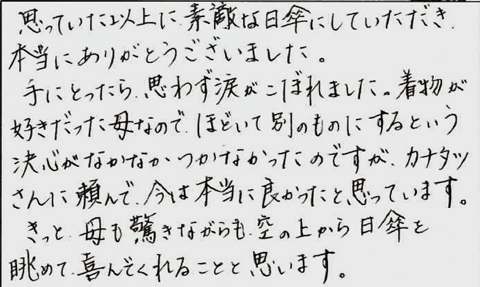 思っていた以上に、素敵な日傘にしていただき、
本当にありがとうございました。
手にとったら、思わず涙がこぼれました。着物が
好きだった母なので、ほどいて別のものにするという
決心がなかなかつかなかったのですが、カナタツ
さんに頼んで、今は本当に良かったと思っています。
きっと、母も驚きながらも、空の上から日傘を
眺めて、喜んでくれることと思います。